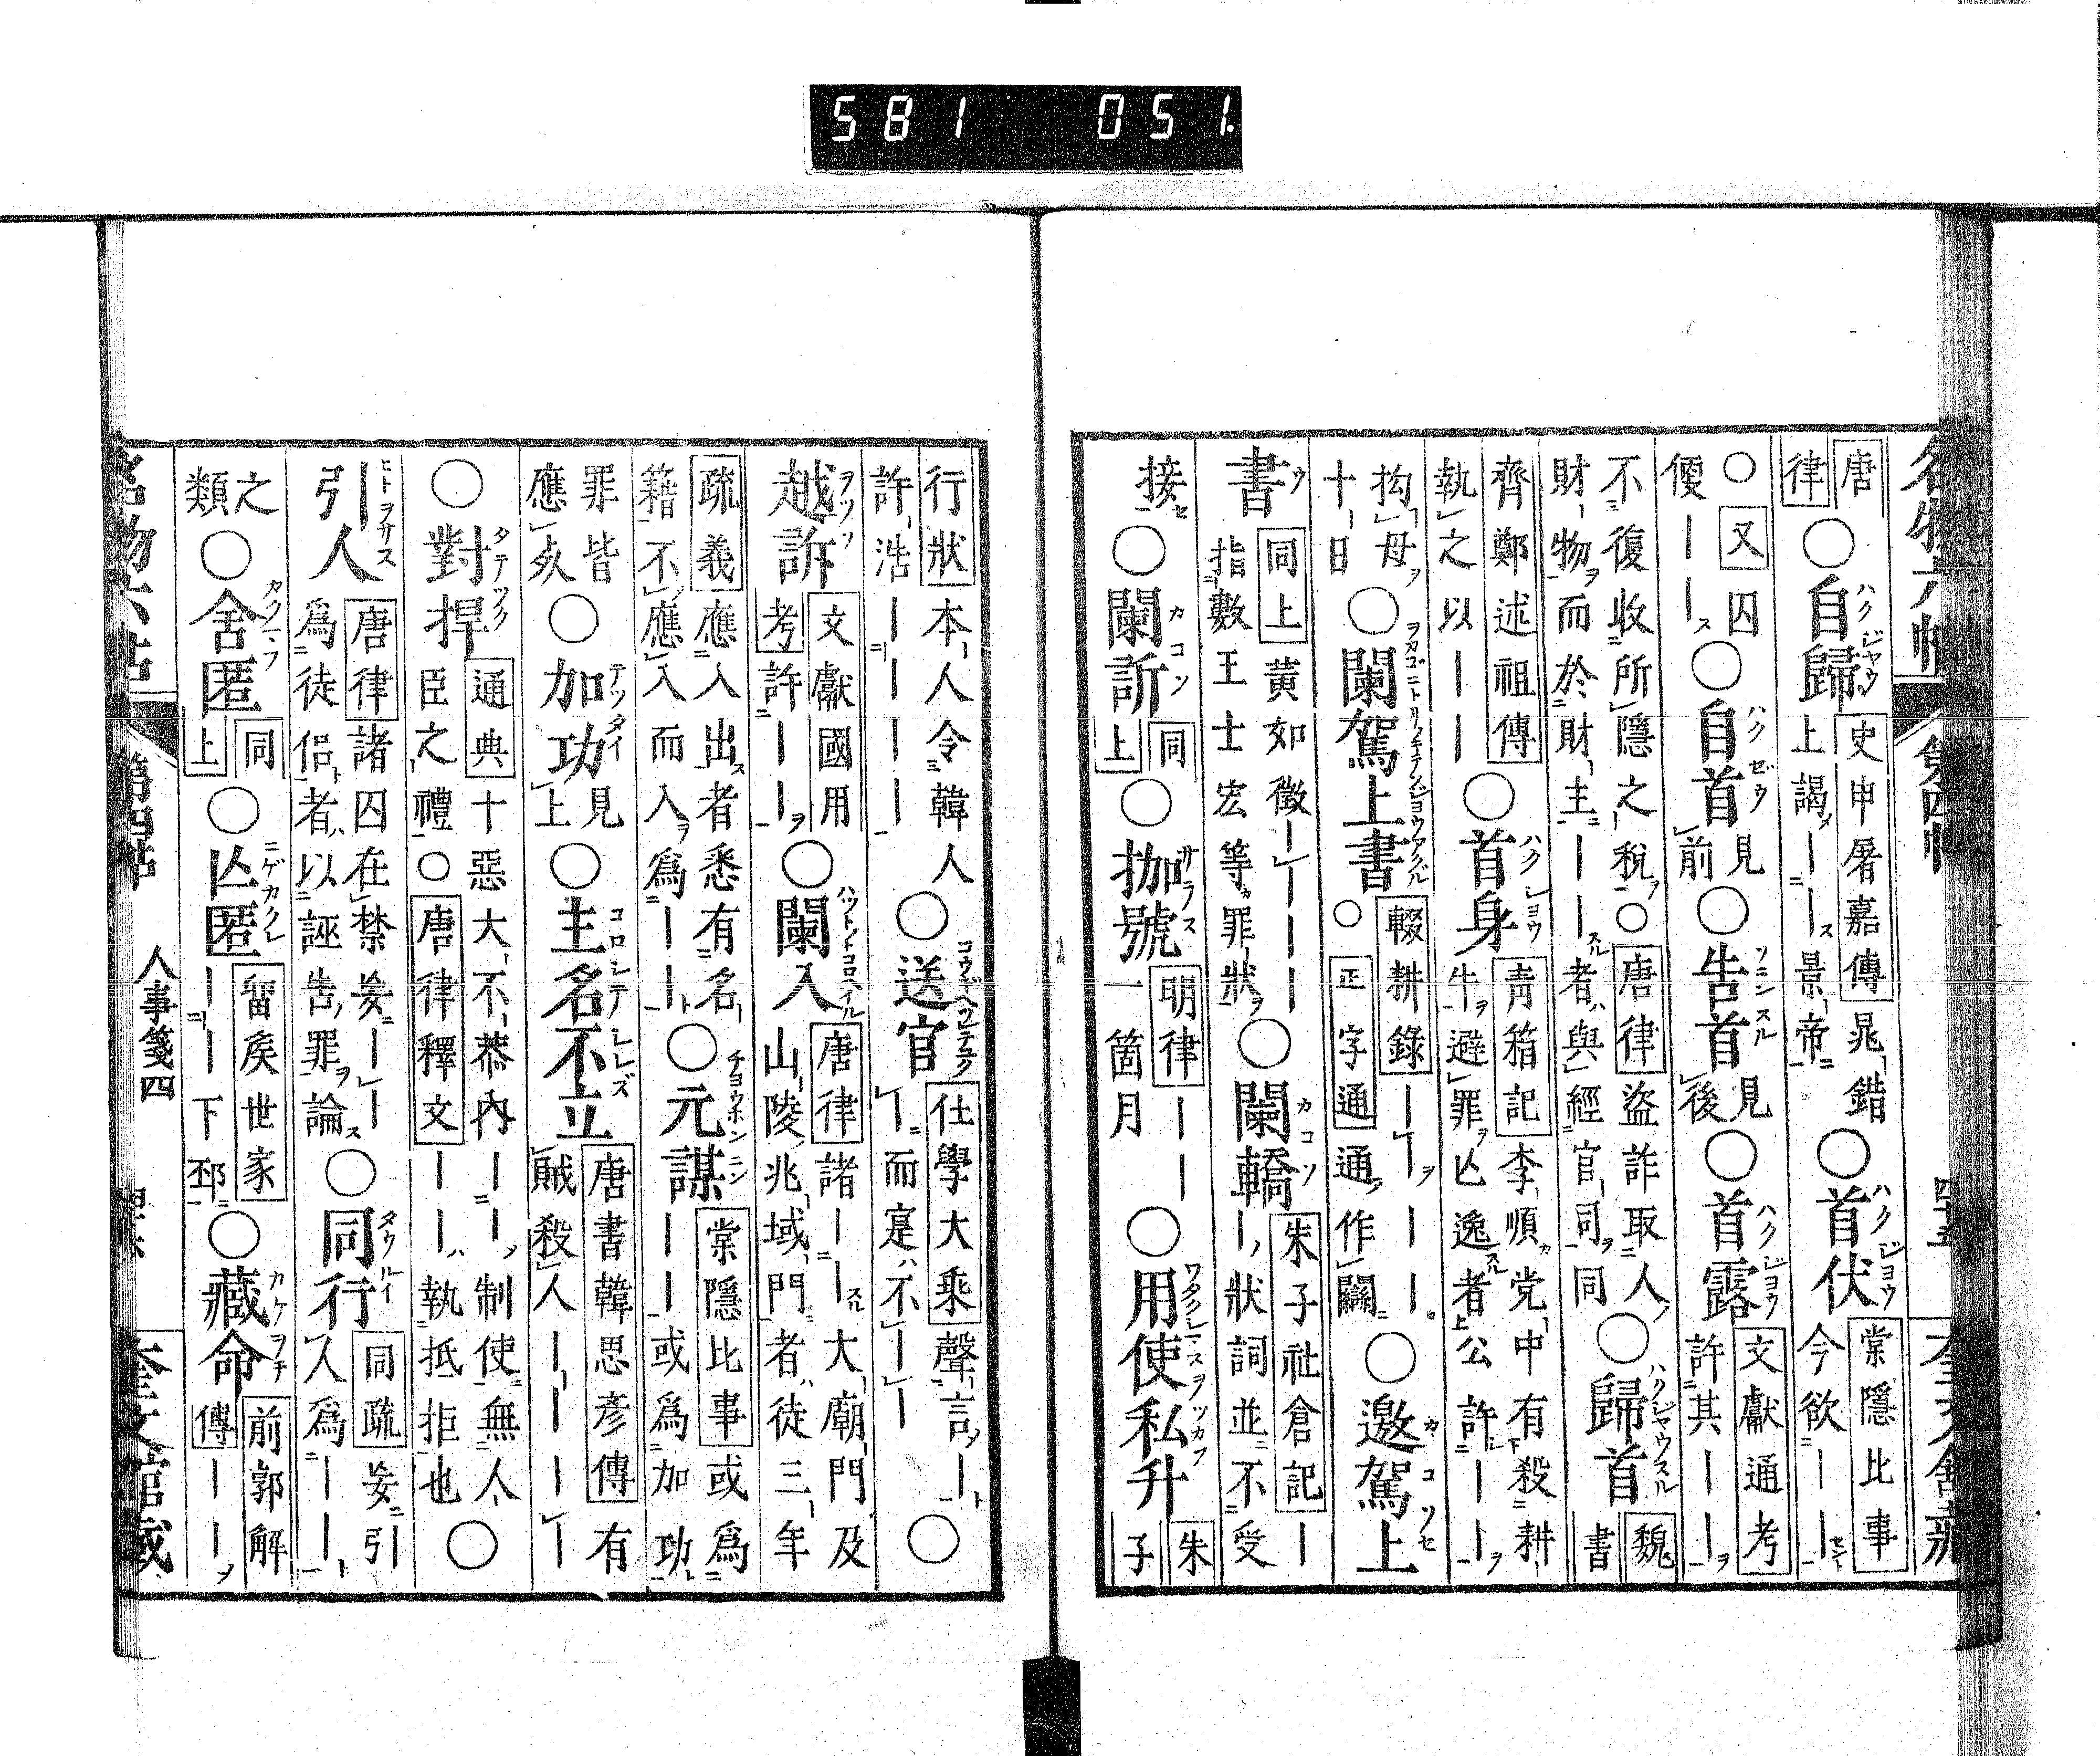 名物六帖 第四帖 四十五 奎文館藏
唐律○自歸史申屠嘉傳晁錯上謁——景帝○首伏棠隱比事今欲——
○又囚便——○自首見前○告首見後○首露文獻通考許其——
不復收所隱之稅○唐律盜詐取人財物而於財主——者與經官同同○歸首魏書
齊鄭述祖傳執之以——○首身青箱記李順党中有殺耕牛避罪亡逸者公許——
拘母十日○闌駕上書○輟耕錄————正字通通作闌○邀駕上
書同上黃如徵————指數王士宏等罪狀○闌轎朱子社倉記——狀詞並不受
接○闌訴同上○枷號明律——一箇月○用使私升朱子
行狀本人令韓人許浩————○送官仕學大乘聲言——而寔不——○
越訴文獻國用考許——○闌入唐律諸——大廟門及山陵兆域門者徒三年
疏義應入出者悉有名籍不應入而入爲——○元謀棠隱比事或爲——或爲加功
罪皆應死○加功見上○主名不立唐書韓思彥傳有賊殺人————
○對捍通典十惡大不恭內——制使無人臣之禮○唐律釋文——執抵拒也○
引人唐律諸囚在禁妄——爲徒侶者以誣告罪論○同行同疏妄引人爲——
之類○舍匿同上○亡匿留矦世家——下邳○藏命前郭解傳——
名物六帖 第四帖 人事箋四 奎文館藏
581 051